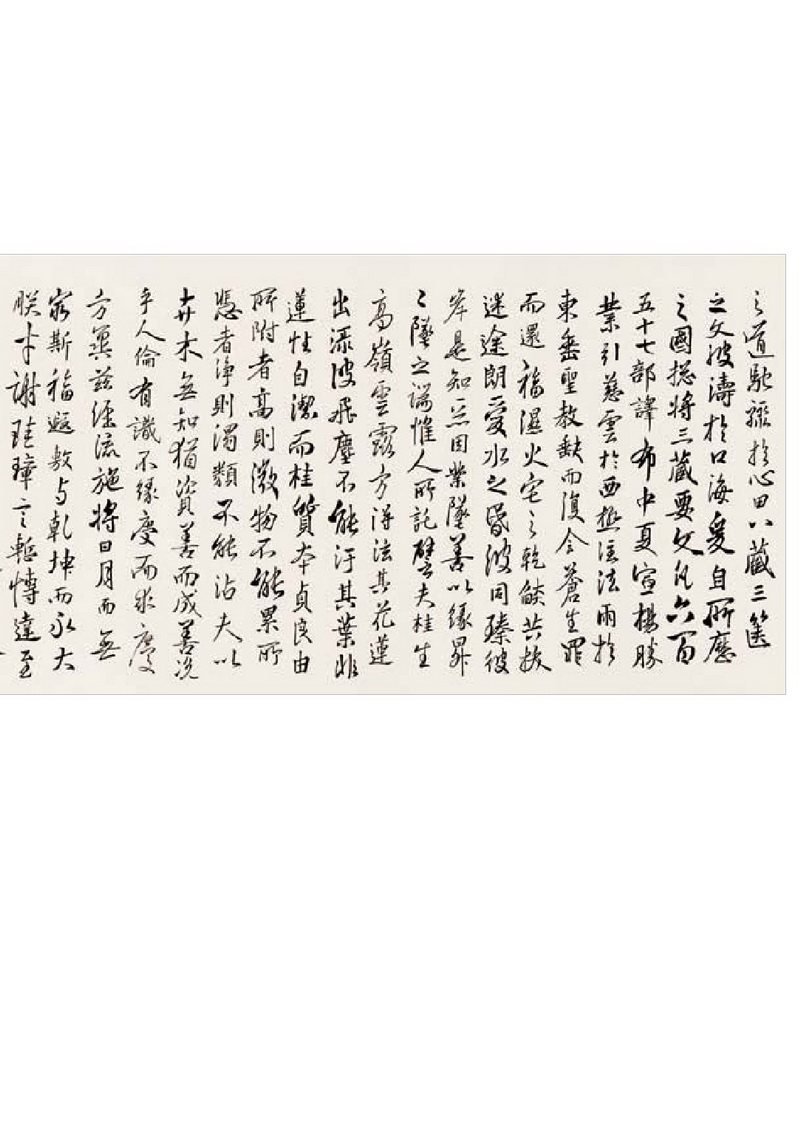 之道馳驟於心田八藏三篋
之文波濤於口海爰自所歷
之國揔將三藏要文凡六百
五十七部譯布中夏宣揚勝
業引慈雲於西極注法雨於
東垂聖教缺而復全蒼生罪
而還福濕火宅之乾燄共拔
迷途朗愛水之昏波同臻彼
岸是知惡因業墜善以緣昇
〻墜之端惟人所託譬夫桂生
高嶺雲露方得法其花蓮
出淥波飛塵不能汙其葉非
蓮性自潔而桂質本貞良由
所附者高則微物不能累所
憑者淨則濁類不能沾夫以
卉木無知猶資善而成善況
乎人倫有識不緣慶而求慶
方冀茲經流施將日月而無
窮斯福遐敷与乾坤而永大
朕才謝珪璋言慚博達至